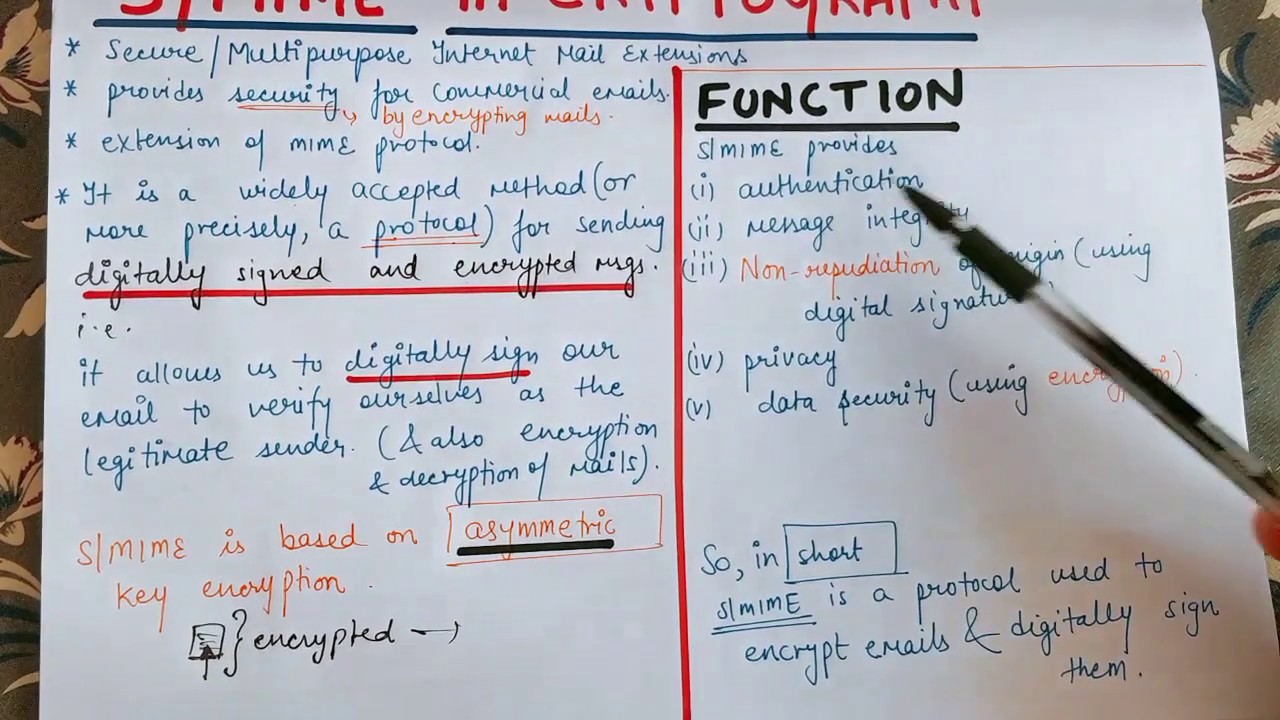 S/MIME IN CRYPTOGRAPHY
* Secure/Multipurpose Internet Mail Extensions
* provides security for commercial emails.
↳ by encrypting mails.
* extension of MIME protocol.
* It is a widely accepted method (or
more precisely, a protocol) for sending
digitally signed and encrypted msgs.
i.e.
it allows us to digitally sign our
email to verify ourselves as the
legitimate sender. (& also encryption
& decryption of mails).
S/MIME is based on asymmetric
key encryption.
} encrypted →
FUNCTION
S/MIME provides
(i) authentication
(ii) message integrity
(iii) Non-repudiation of origin (using
digital signature)
(iv) privacy
(v) data security (using encryption).
So, in short
S/MIME is a protocol used to
encrypt emails & digitally sign
them.